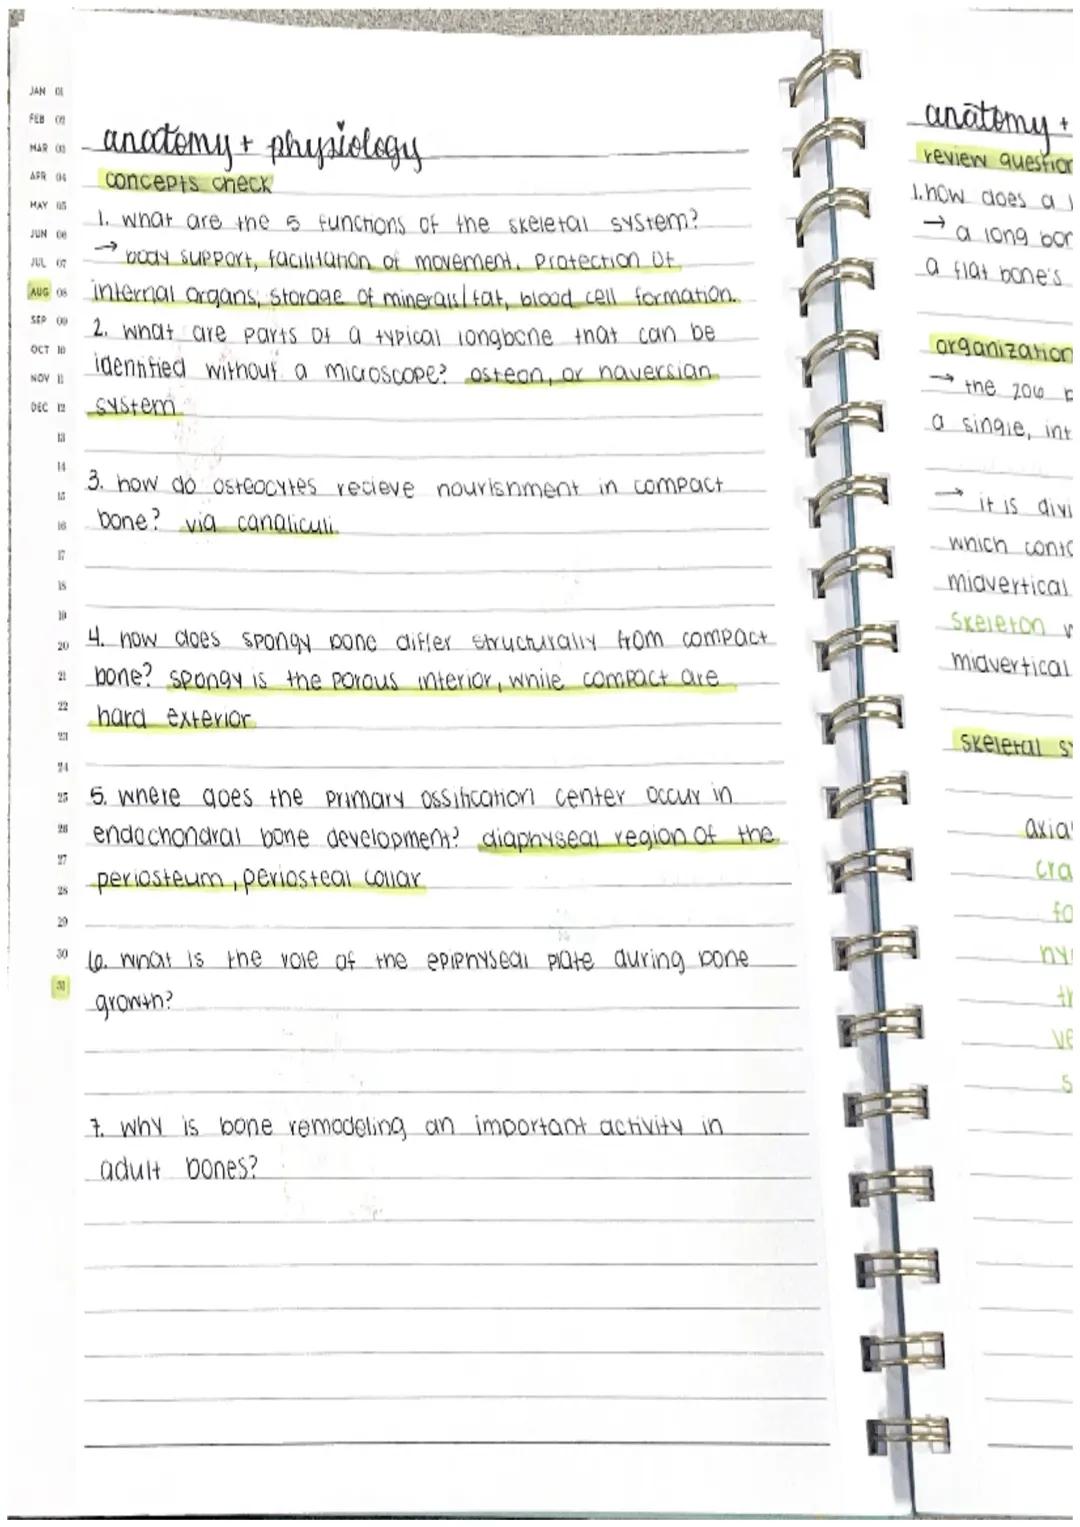 JAN 01
FEB 02
MAR 03
APR 04
MAY 05
JUN 06
JUL 07
AUG 08
SEP 09
OCT 10
NOV 11
DEC 12
13
14
15
16
17
18
19
20
21
22
23
24
25
26
27
28
29
30
31
anatomy + physiology
concepts check
1. what are the 5 functions of the skeletal system?
→ body support, facilitation of movement, protection of
internal organs, storage of minerals/fat, blood cell formation.
2. what are parts of a typical longbone that can be
identified without a microscope? osteon, or haversian
system
3. how do osteocytes recieve nourishment in compact
bone? via canaliculi
4. how does spongy bone differ structurally from compact
bone? spongy is the porous interior, while compact are
hard exterior
5. where does the primary ossification center occur in
endochondral bone development? diaphyseal region of the
periosteum, periosteal collar
6. what is the role of the epiphyseal plate during bone
growth?
7. why is bone remodeling an important activity in
adult bones?
anatomy +
review question
1. how does a
→ a long bon
a flat bone's
organization
→ the 206 b
a single, int
→ it is divi
which conta
midvertical
skeleton w
midvertical
skeletal sy
axia
cra
fa
hy
th
ve
s